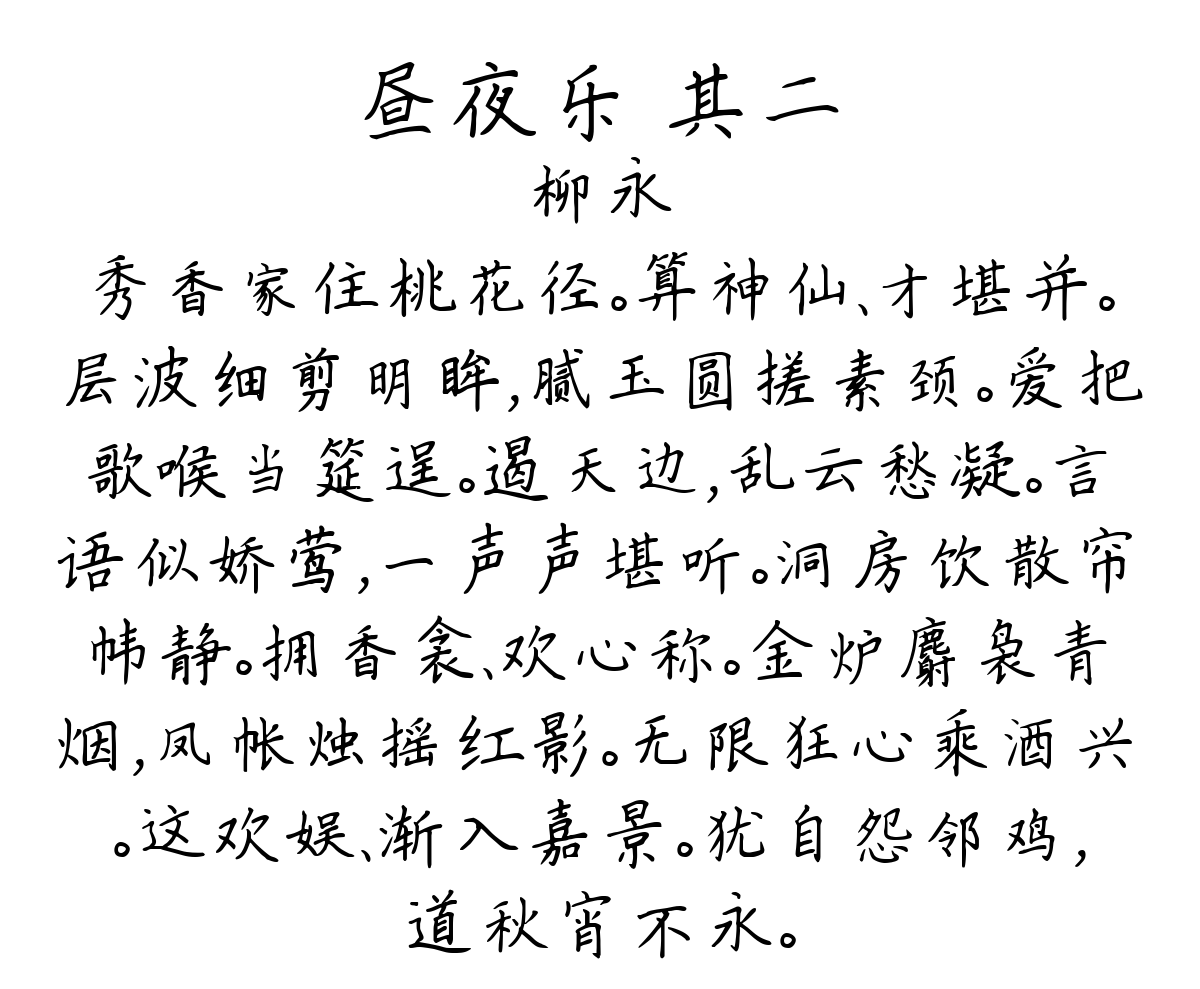 昼夜乐 其二
柳永
秀香家住桃花径。算神仙、才堪并。
层波细剪明眸,腻玉圆搓素颈。爱把
歌喉当筵逞。遏天边,乱云愁凝。言
语似娇莺,一声声堪听。洞房饮散帘
帏静。拥香衾、欢心称。金炉麝袅青
烟,凤帐烛摇红影。无限狂心乘酒兴
。这欢娱、渐入嘉景。犹自怨邻鸡,
道秋宵不永。